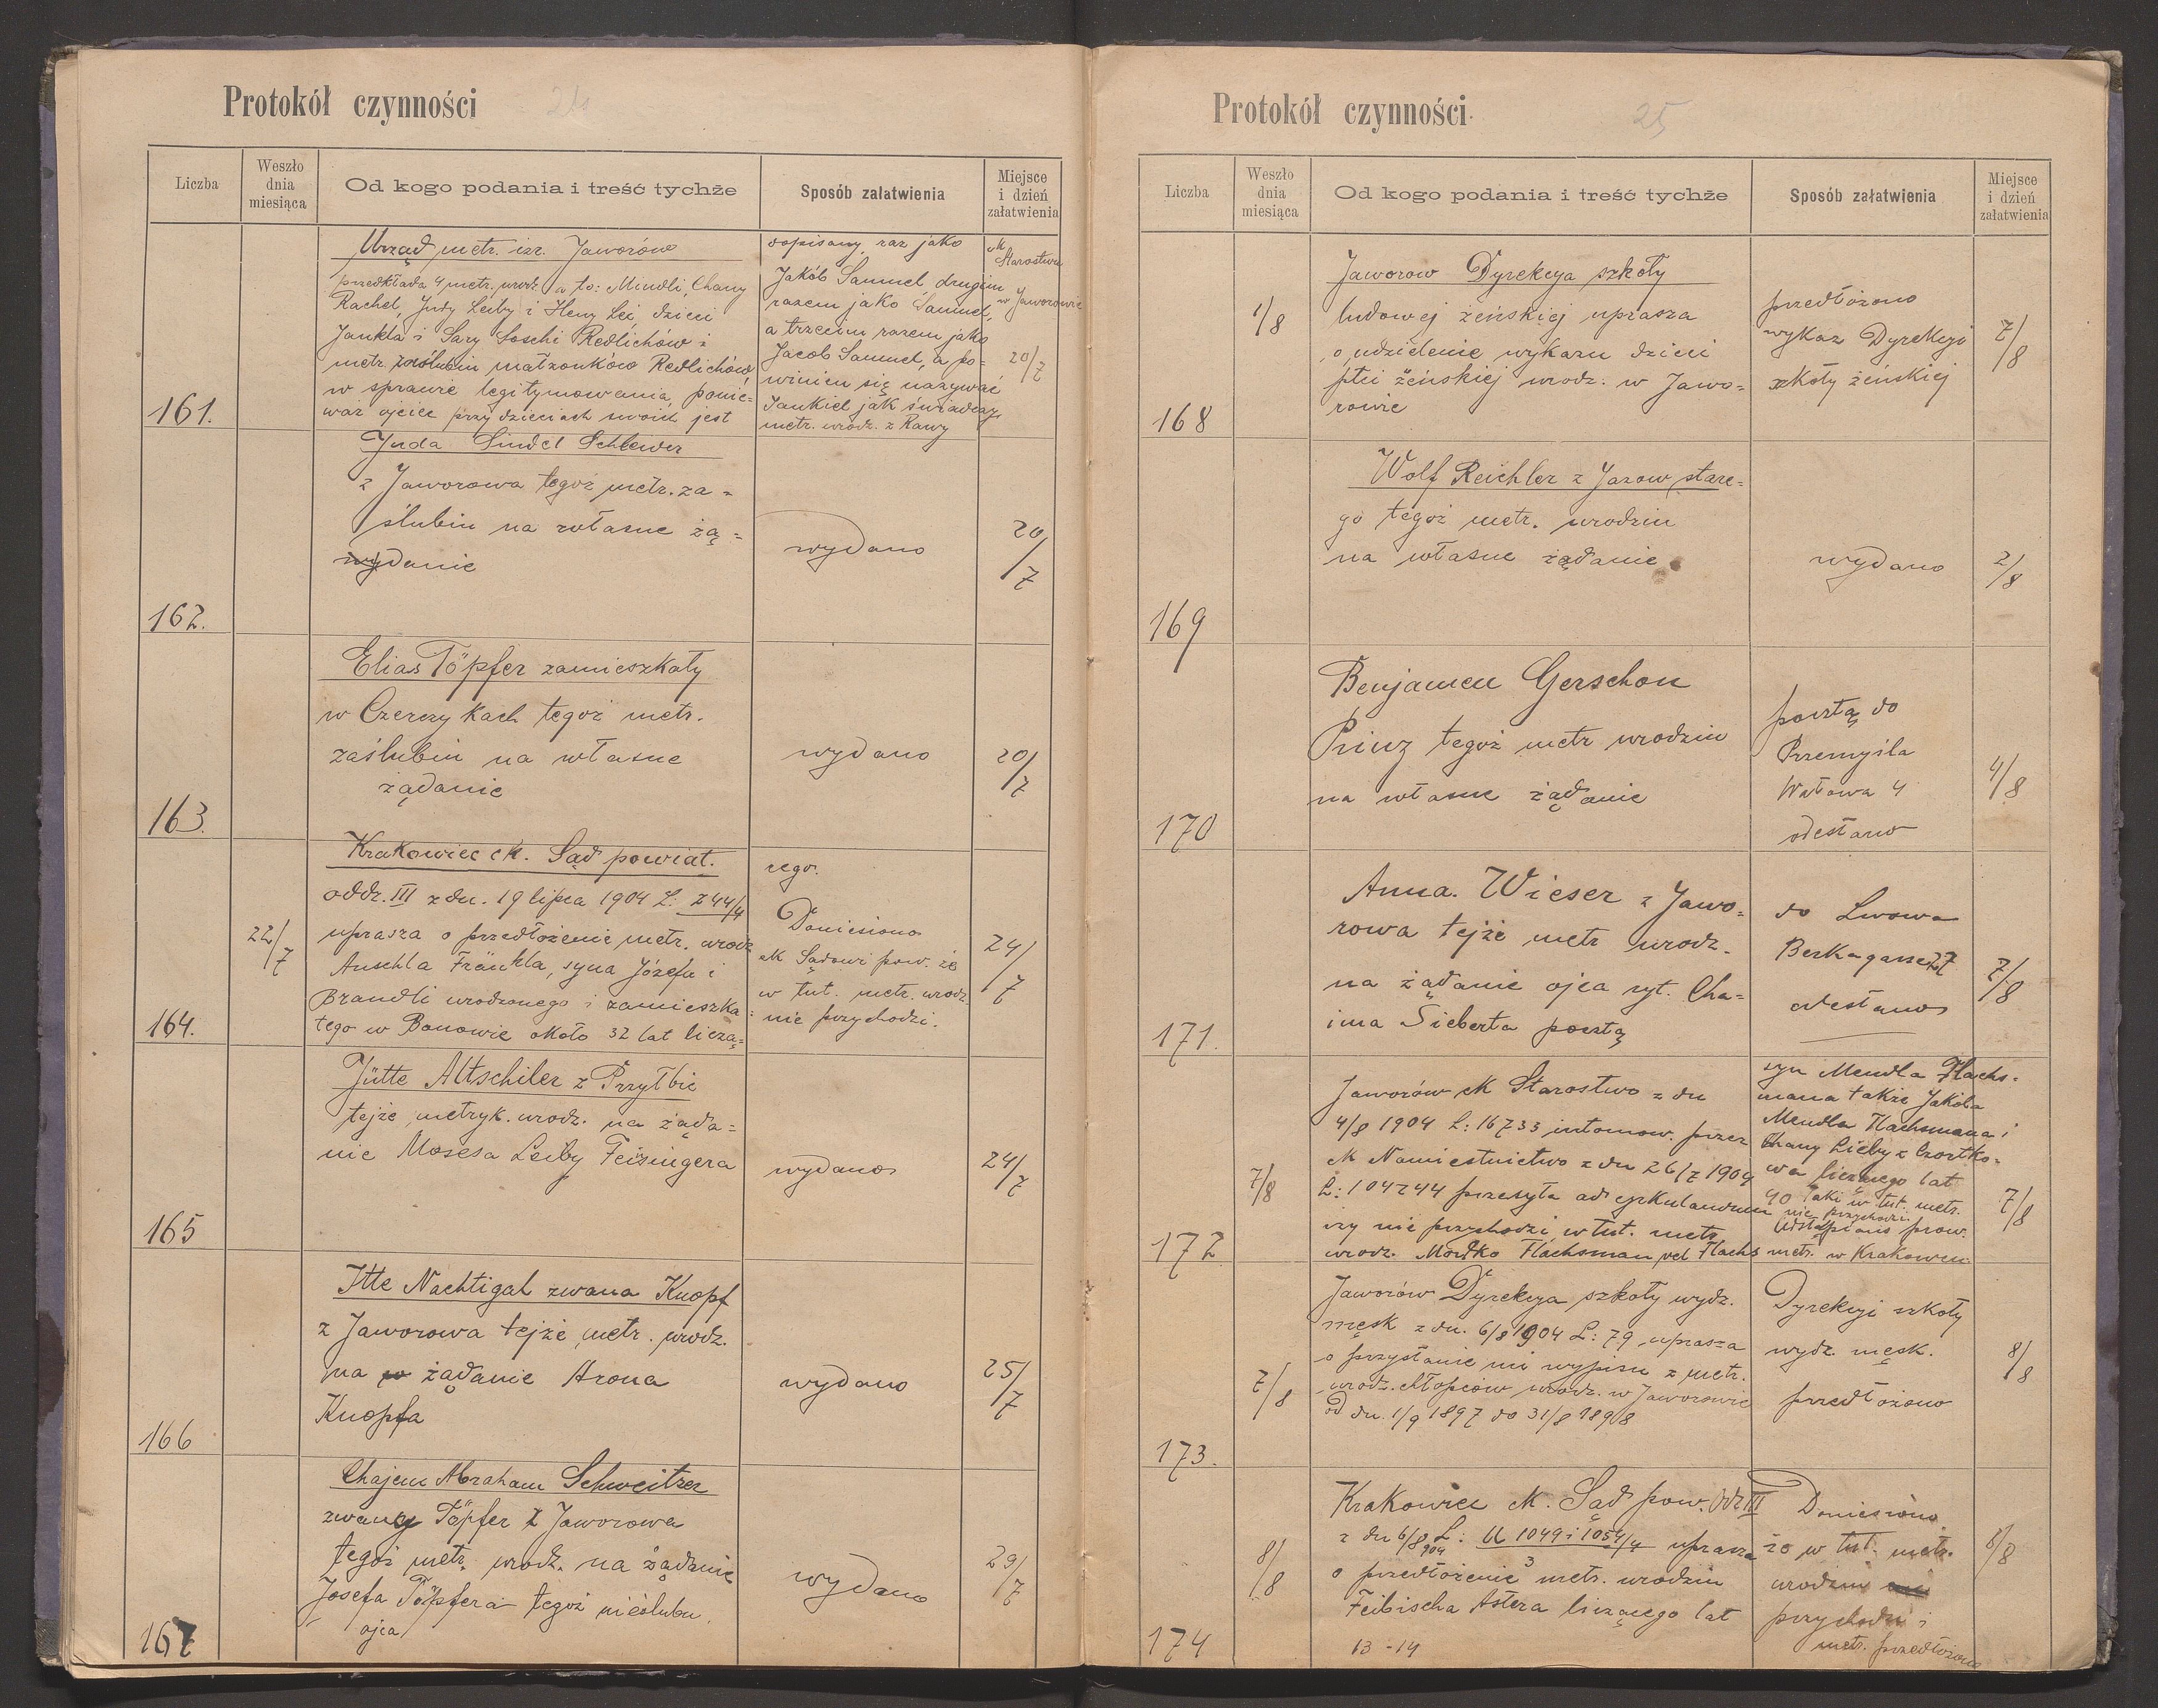 Protokół czynności
Liczba
Weszło dnia miesiąca
Od kogo podania i treść tychże
Sposób załatwienia
Miejsce i dzień załatwienia
161.
Urząd metr. izr. Jaworów
przedkłada 4 metr. urodz. a to: Mendli, Chany
Rachel, Judy Leiby i Heny Lei, dzieci
Jankla i Sary Soschi Redlichów i
metr. zaślubin małżonków Redlichów,
w sprawie legitymowania, ponie=
waż ojciec przy dzieciach swoich jest
dopisany, raz jako
Jakób Samuel, drugim
razem jako Samuel,
a trzecim razem jako
Jacob Samuel, a po=
winien się nazywać
Jankiel jak świadczy
metr. urodz. z Rawy
ck Starostwu
w Jaworowie
20/7
162.
Juda Sindel Schlewer
z Jaworowa tegoż metr. za=
ślubin na własne żą=
danie
wydano
20/7
163.
Elias Töpfer zamieszkały
w Czerczykach tegoż metr.
zaślubin na własne
żądanie
wydano
20/7
164.
22/7
Krakowiec ck. Sąd powiat.
oddz. III z dn. 19 lipca 1904 L: 244/4
uprasza o przedłożenie metr. urodz.
Anschla Fränkla, syna Józefa i
Brandli urodzonego i zamieszka=
łego w Bonowie około 32 lat licza=
cego.
Doniesiono
ck Sądowi pow. że
w tut. metr. urodz.
nie przychodzi.
24/7
165
Jütte Altschiler z Przyłbic
tejże metryk. urodz. na żąda=
nie Mosesa Leiby Feisingera
wydano
24/7
166
Itte Nachtigal zwana Knopf
z Jaworowa tejże metr. urodz.
na żądanie Arona
Knopfa
wydano
25/7
167
Chajem Abraham Schweitzer
zwany Töpfer z Jaworowa
tegoż metr. urodz. na żądanie
Josefa Töpfera tegoż nieślubn.
ojca
wydano
29/7
Protokół czynności.
25
Liczba
Weszło dnia miesiąca
Od kogo podania i treść tychże
Sposób załatwienia
Miejsce i dzień załatwienia
168
1/8
Jaworow Dyrekcya szkoły
ludowej żeńskiej uprasza
o udzielenie wykazu dzieci
płci żeńskiej urodz. w Jawo=
rowie
przedłożono
wykaz Dyrekcyi
szkoły żeńskiej
7/8
169
Wolf Reichler z Jazow stare=
go tegoż metr. urodzin
na własne żądanie
wydano
2/8
170
Benjamen Gerschon
Prinz tegoż metr urodzin
na własne żądanie
pocztą do
Przemyśla
Wałowa 4
odesłano
4/8
171.
Anna. Wieser z Jawo=
rowa tejże metr urodz.
na żądanie ojca ryt. Cha=
ima Sieberta pocztą
do Lwowa
Berkagasse 27
odesłano
7/8
172
7/8
Jaworów ck Starostwo z dn
4/8 1904 L: 16733 intomow. przez
ck Namiestnictwo z dn 26/7 1904
L: 104244 przesyła ad cyrkulandum
czy nie przychodzi w tut. metr
urodz. Mordko Flachsman vel Flachs
syn Mendla Flachs=
mana także Jakóba
Mendla Flachsmana i
Chany Lieby z Czortko=
wa liczącego lat
40 Taki w tut. metr.
nie przychodzi.
Odstąpiono prow.
metr. w Krakowcu.
7/8
173.
7/8
Jaworów Dyrekcya szkoły wydz.
męsk z dn. 6/8 1904 L: 79 uprasza
o przysłanie mi wypisu z metr.
urodz. chłopców urodz. w Jaworowie
od dn. 1/9 1897 do 31/8 1898
Dyrekcyi szkoły
wydz. męsk.
przedłożono
8/8
174
8/8
Krakowiec ck. Sąd pow. Odz III
z dn 6/8 904 L: U 1049 i 1054/4 uprasza
o przedłożenie 3 metr. urodzin
Feibischa Astera liczącego lat
13 - 14
Doniesiono
że w tut. metr.
urodzin
przychodzi i
metr. przedłożono
8/8